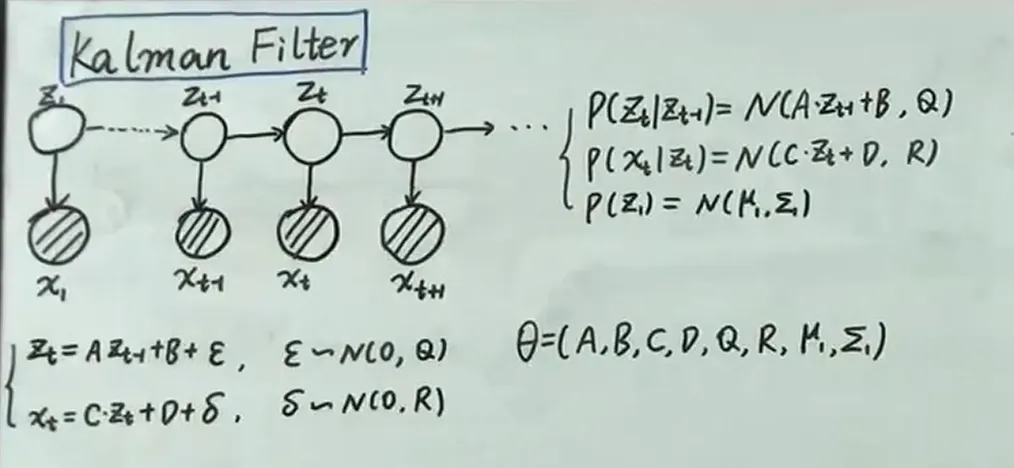 Kalman Filter
z₁ zₜ₋₁ zₜ zₜ₊₁
x₁ xₜ₋₁ xₜ xₜ₊₁
...
P(zₜ|zₜ₋₁) = N(A·zₜ₋₁+B, Q)
P(xₜ|zₜ) = N(C·zₜ+D, R)
P(z₁) = N(μ₁, Σ₁)
zₜ = A zₜ₋₁+B+ε, ε∽N(0, Q)
xₜ = C·zₜ+D+δ, δ∽N(0, R)
θ=(A, B, C, D, Q, R, μ₁, Σ₁)